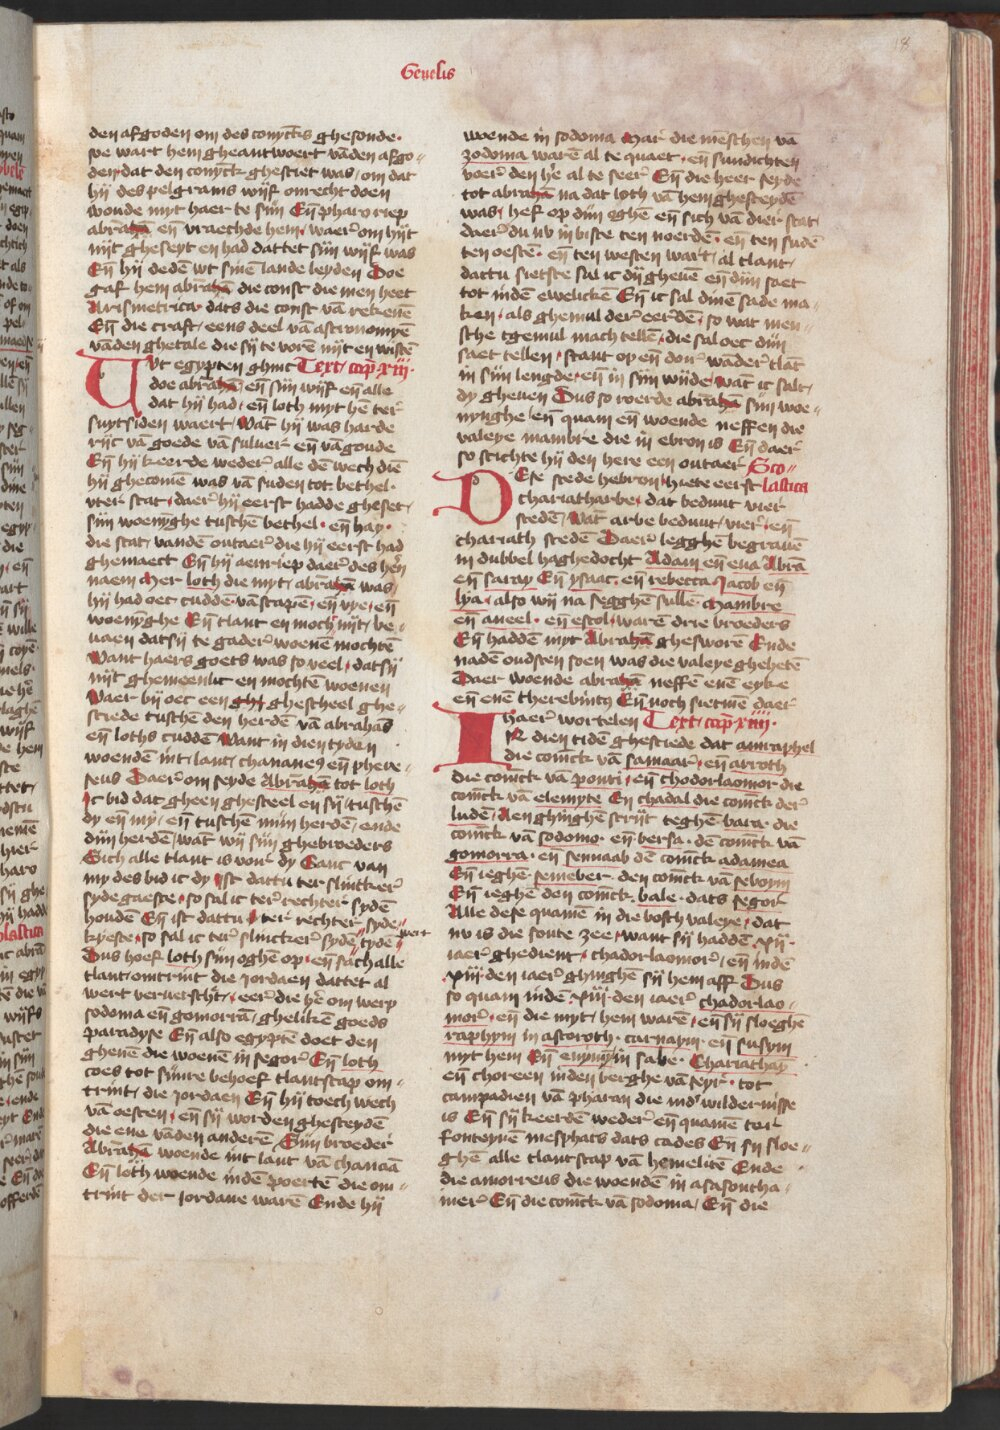 Genesis
den afgoden om des conyc̄ks ghesonde·
soe wart hem gheantwoert vādē afgo-
den dat den conyck ghesciet was / om dat
hij des pelgrams wijf onrecht doen
woude myt haer te sijn Eñ pharo riep
abrahā eñ vraechde hem / waerōm hijt
nijt gheseyt en had dattet sijn wijf was
Eñ hij dedē wt sinē lande leyden Doe
gaf hem abrahā die const die men heet
Arismetrica dats die const vā rekenē
Eñ die craft / eens deel vā astronomyē
vādē ghetale die sij te vorē nijt en wistē
Vvt egypten ghinc Text / cap̄ xiij·
doe abrahā eñ sijn wijf eñ alle
dat hij had / eñ loth myt hē ter
suytsiden waert / Wāt hij was harde
rijc vā goede vā suluer eñ vā goude
Eñ hij keerde weder alle dē wech diē
hij ghecomē was vā suden tot bethel·
vter stat / daer hij eerst hadde gheset /
sijn woenȳghe tuschē bethel· eñ hay·
die stat / vandē outaer die hij eerst had
ghemaect Eñ hij aenriep daer des hēn
naem Mer loth die myt / abrahā was /
hij had oec cudde· vā scapen / eñ vye / eñ
woenȳghe Eñ tlant en moch nijt / be-
uaen datsij te gader woenē mochtē
Want haers goets was so veel / datsij
nijt ghemeenlic en mochtē woenen
Daer bij oec een ghi ghescheel ghe-
sciede tuschē den herdē vā abrahās
eñ loths cuddē Want in dien tyden
woendē int / lant / chananeꝯ eñ phere-
seus Daerōm seyde Abrahā tot loth
Ic bid dat gheen ghesteel en sij / tuschē
dy en my / eñ tuschē mijn herdē / ende
dijn herdē / wāt wij sijn ghebroeders
Sich alle tlant is voir dy Ganc van
my des bid ic dy Ist dattu ter slincker
syde gaeste / so sal ic ter rechter sydē
houdē Eñ ist dattu ter rechter syde /
kyeste / so sal ic ter slincker sydē tydē wert
Dus hoef loth sijn oghē op / eñ sach alle
tlant / omtrint die jordaen dattet al
wert ververscht / eer die hē om werp
sodoma eñ gomorrā / ghelikē goeds
paradyse Eñ also egyptē doet den
ghenē die woenē in segor Eñ loth
coes tot sijnre behoef tlantscap om-
trint / die jordaen Eñ hij toech wech
vā oesten / eñ sij worden ghesceydē
die ene vāden anderē Sijn broeder
Abrahā woende int lant vā chanaā
Eñ loth woende indē poertē die om-
trint der jordane warē Ende hij
woende in sodoma Mar die mēschen vā
zodoma warē al te quaet / eñ sundichten
voer den hē al te seer Eñ die heer seyde
tot abrahā na dat loth vā hem ghesceydē
was / hef op dijn oghē eñ sich vā dier stat
daer du nv in biste ten noerdē· eñ ten sudē
ten oestē· eñ ten westen wart / al tlant /
dattu sietste sal ic dij gheuē eñ dijn saet
tot indē ewelickē Eñ ic sal dinē sade ma-
ken / als ghemul der eerdē / so wat men-
sche tgemul mach tellē / die sal oec dijn
saet tellen / stant op eñ doer wāder tlāt
in sijn lengde / eñ in sijn wijde / wāt ic salt /
dy gheuen Dus so roerde abrahā sijn woe-
nynghe / eñ quam eñ woende neffen die
valeye mambre die in ebron is Eñ daer
so stichte hij den here een outaer Sco-
Dese stede hebron / hiete eerst lastica
chariatharbe / dat beduut vier
stedē / wāt arbe beduut / vier / eñ
chariath stedē Daer legghē begrauē
in dubbel haghedocht Adam eñ eua Abra
eñ saray Eñ ysaac· eñ rebecca Jacob eñ
lya / also wij na segghē sullē Mambre
eñ aneel· eñ escol / warē drie broeders
Eñ haddē myt Abrahā ghesworē Ende
nadē oudsten soen was die valeye ghehetē
Daer woende abrahā neffē enē eyke
eñ enē therebintꝯ Eñ noch sietmē daer
haer wortelen Text / cap̄ xiiij·
In dien tidē ghesciede dat amraphel
die coni̅ck vā sanaar / eñ arroth
die coni̅ck vā ponti / eñ chodorlaomor die
coni̅ck vā elemyte Eñ chadal die coni̅ck der
ludē / Aenghinghē strijt teghē bara die
coni̅ck vā sodomo· eñ bersa· dē coni̅ck vā
gomorra· eñ sennaab dē coni̅ck adamea
Eñ ieghē semeber den coni̅ck vā seboym
Eñ ieghē den coni̅ck bale· dats segor
Alle dese quamē in die bosch valeye / dat
nv is die soute zee / want sij haddē xij·
iaer ghedient / chadorlaomor / eñ indē
xiij· den iaer ghinghē sij hem aff Dus
so quam indē xiiij· den iaer chadorlao-
mor / eñ die myt / hem warē / eñ sij sloeghē
raphym in astoroth· carnaym eñ susym
myt hem Eñ emym in sabe· Chariathaȳ
eñ choreen inden berghe vā seyr· tot
campadien vā pharan die ind' wildernisse
is Eñ sij keerdē weder eñ quamē ter
fonteynē mesphats dats cades Eñ sij sloe-
ghē alle tlantscap vā hemelitē Ende
die amorreus die woendē in asasontha-
mer Eñ die coni̅ck vā sodoma / Eñ die